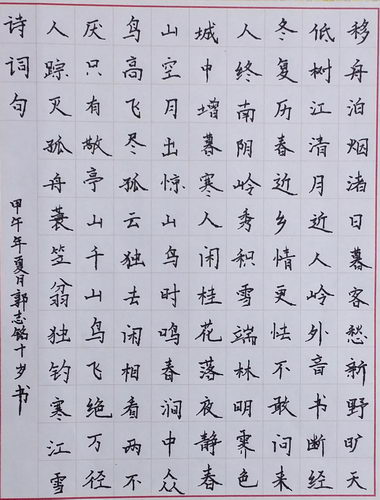 移舟泊烟渚日暮客愁新野旷天
低树江清月近人岭外音书断经
冬复历春近乡情更怯不敢问来
人终南阴岭秀积雪端林明霁色
城中增暮寒人闲桂花落夜静春
山空月出惊山鸟时鸣春涧中众
鸟高飞尽孤云独去闲相看两不
厌只有敬亭山千山鸟飞绝万径
人踪灭孤舟蓑笠翁独钓寒江雪
诗词句
甲午年夏月郭志铭十岁书